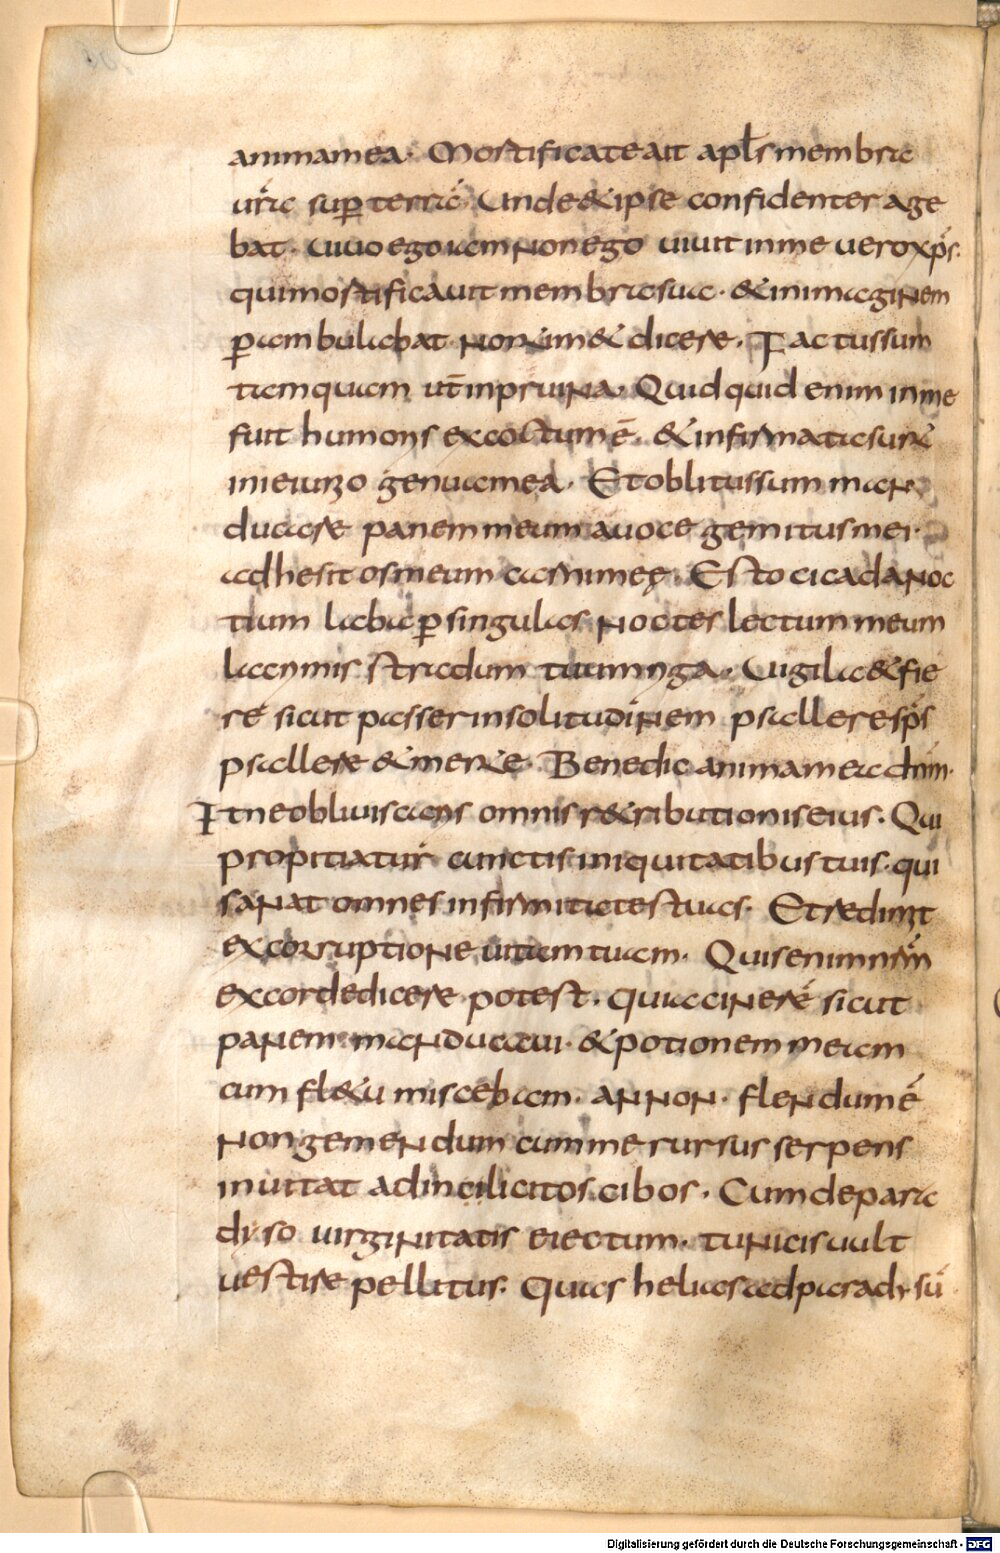 animamea. Mortificate ait apłs membra
ura̅ sup terra̅ Unde & ipse confidenter age
bat. uiuo ego iam non ego uiuit in me uero xps̅.
qui mortificauit membra sua. & in imaginem
p ambulabat non tim& dicere. Factus sum
tamquam ut̅ in pruina. Quidquid enim in me
fuit humoris excoctum e̅. & infirmata sun̅
in ieiunio genua mea. Et oblitus sum man
ducare panem meum a uoce gemitus mei.
adhesit os meum carni meę. Esto cicada noc
tium laba p singulas noctes lectum meum
lacrimis stratum tuum riga. Uigila & fie
re sicut passer in solitudinem psallere sps̅
psallere & mente. Benedic anima mea dn̅m.
Et ne obliuiscaris omnis r&ributionis eius. Qui
propitiatur cunctis iniquitatibus tuis. qui
sanat omnes infirmitates tuas. Et redimit
ex corruptione uitam tuam. Quis enim nr̅m
ex corde dicere potest. quia cinere̅ sicut
panem manducaui. & potionem meam
cum fl&u miscebam. an non flendum e̅
non gemendum cum me rursus serpens
inuitat ad inlicitos cibos. Cum de para
dyso uirginitatis eiectum. tunicis uult
uestire pellitus. Quas helias ad paradysu̅
Digitalisierung gefördert durch die Deutsche Forschungsgemeinschaft - DFG